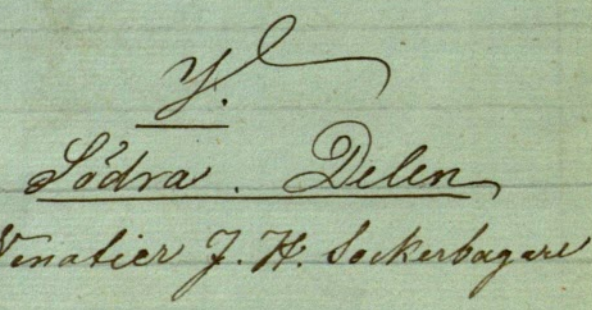 Y.
Södra. Delen
Venatier J. H. Sockerbagare